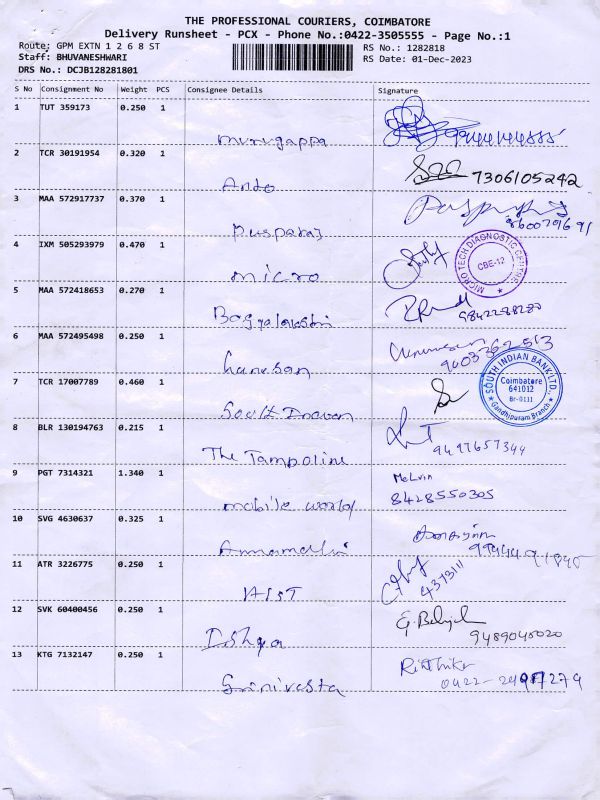 THE PROFESSIONAL COURIERS, COIMBATORE
Delivery Runsheet - PCX - Phone No.:0422-3505555 - Page No.:1
Route: GPM EXTN 1 2 6 8 ST
RS No.: 1282818
Staff: BHUVANESHWARI
RS Date: 01-Dec-2023
DRS No.: DCJB128281801
S No Consignment No Weight PCS Consignee Details Signature
1 TUT 359173 0.250 1
murugappa
2 TCR 30191954 0.320 1
Ando 7306105242
3 MAA 572917737 0.370 1
Pusparaj
4 IXM 505293979 0.470 1
micro
MICRO TECH DIAGNOSTIC CENTRE
CBE-12
5 MAA 572418653 0.270 1
9842288280
6 MAA 572495498 0.250 1
Ganesan 9003362513
7 TCR 17007789 0.460 1
SOUTH INDIAN BANK LTD.
Coimbatore
641012
Br-0111
Gandhipuram Branch
8 BLR 130194763 0.215 1
The Tampoline 9497657344
9 PGT 7314321 1.340 1
Melvin
mobile world 8428550305
10 SVG 4630637 0.325 1
11 ATR 3226775 0.250 1
4373111
12 SVK 60400456 0.250 1
9489045020
13 KTG 7132147 0.250 1
0422-2497279